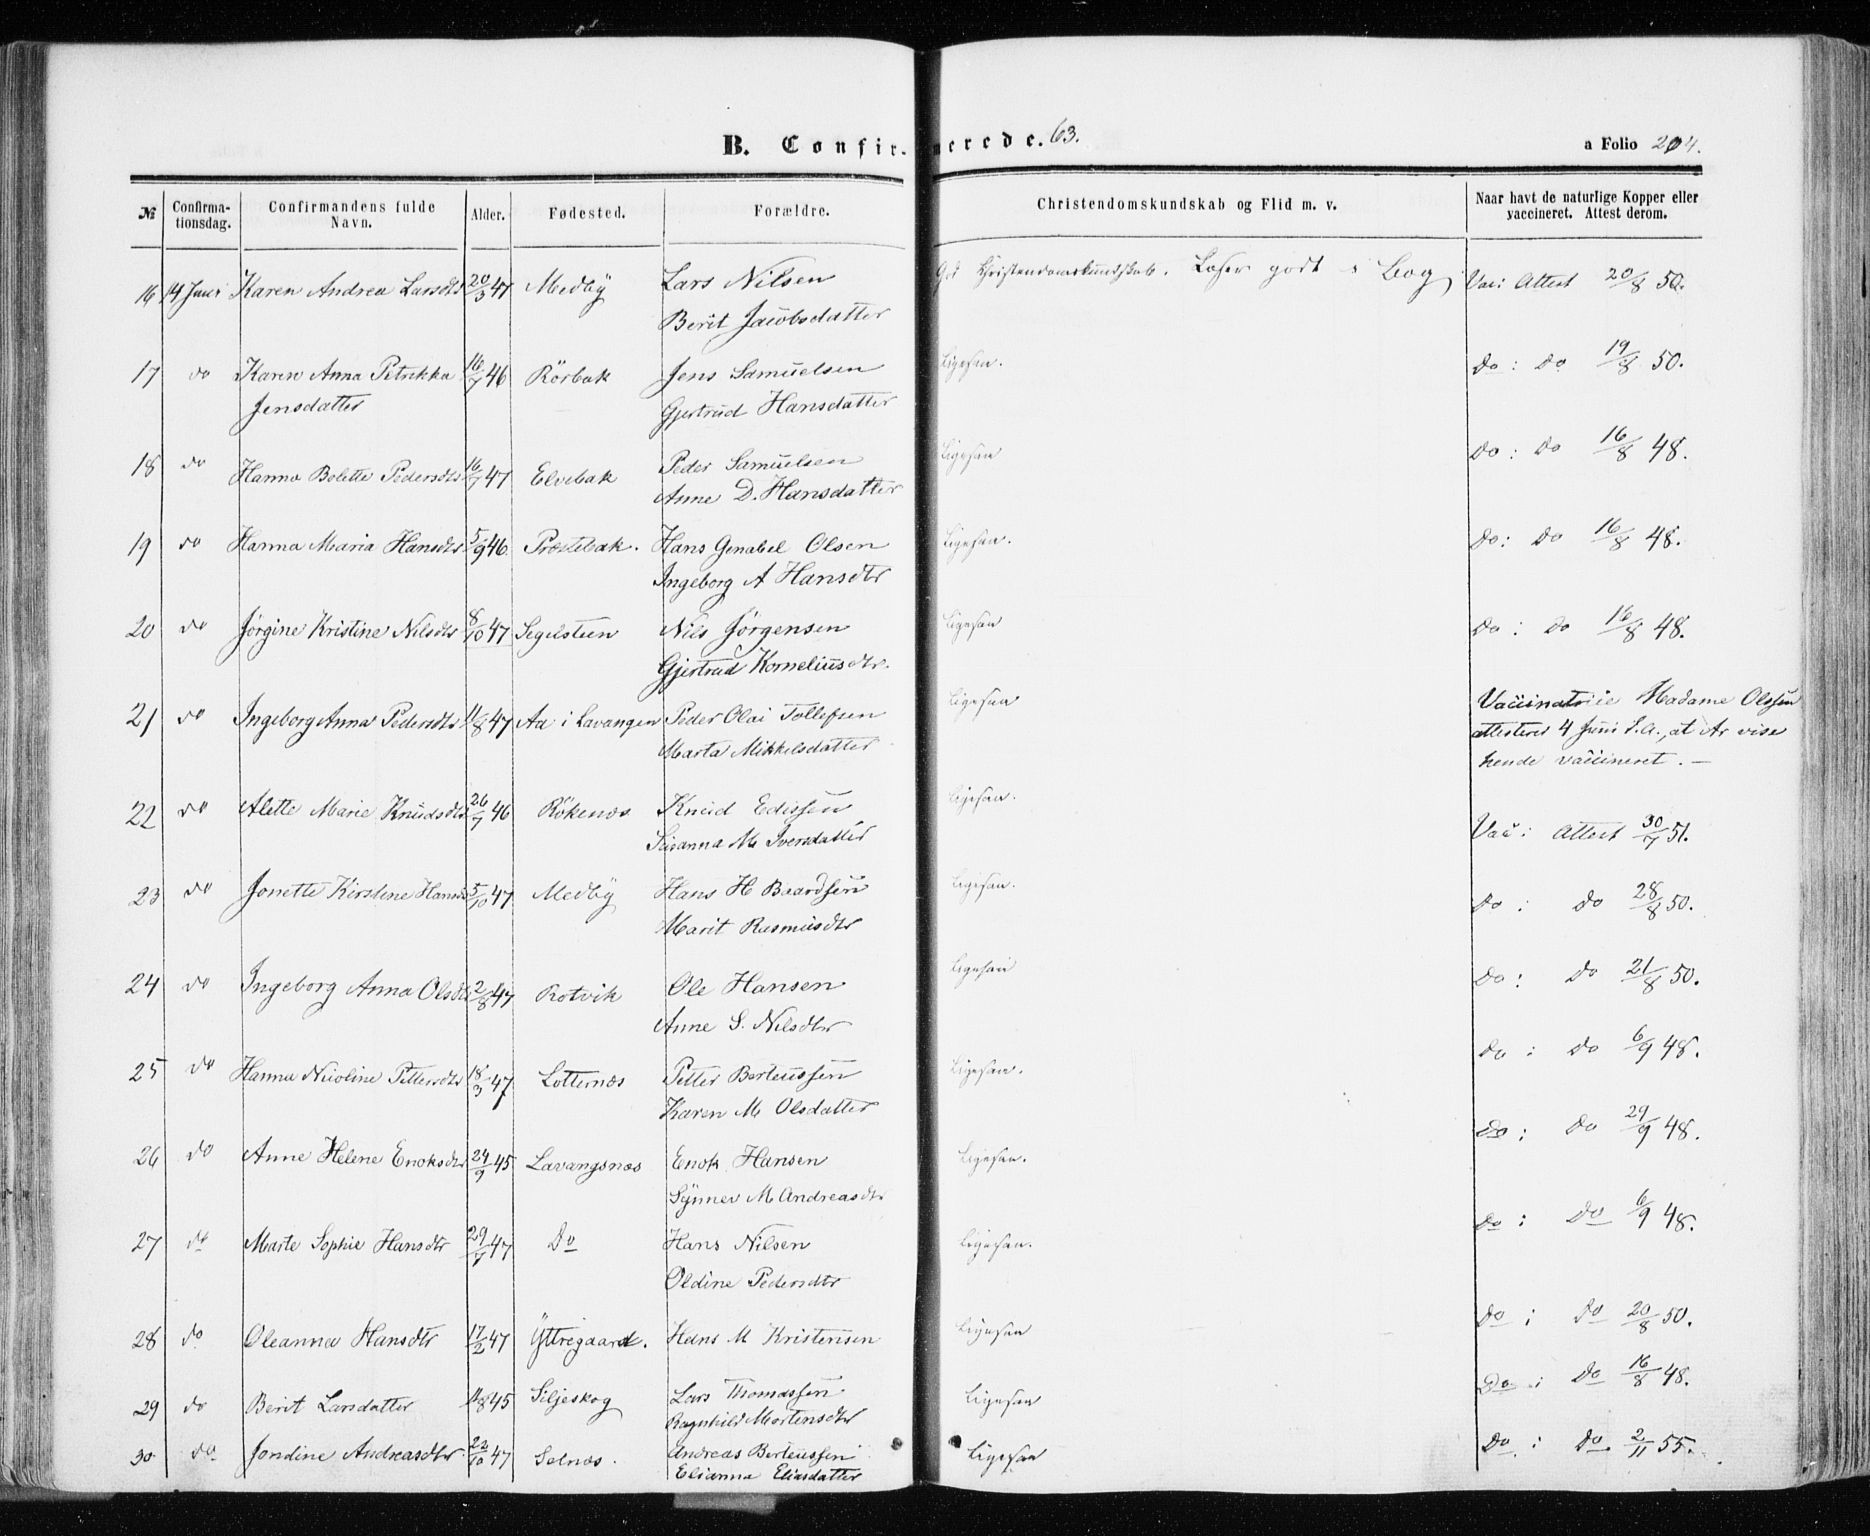 B. Confirmerede. 63. a Folio 204.
№ Confirmationsdag. Confirmandens fulde Navn. Alder. Fødested. Forældre. Christendomskundskab og Flid m. v. Naar havt de naturlige Kopper eller vaccineret. Attest derom.
16 14 Juni Karen Andrea Larsdtr 20/3 47 Medby Lars Nilsen God Christendomskundskab. Læser godt i Bog Vac: Attest 20/8 50.
Berit Jacobsdatter
17 do Karen Anna Petrikka 16/7 46 Rörbak Jens Samuelsen Ligesaa. Do: Do 19/8 50.
Jensdatter Gjertrud Hansdatter
18 do Hanna Bolette Pedersdtr 16/7 47 Elvebak Peder Samuelsen Ligesaa Do: Do 16/8 48.
Anne D. Hansdatter
19 do Hanna Maria Hansdtr 5/9 46 Præstebak. Hans Genabel Olsen Ligesaa. Do: Do 16/8 48.
Ingeborg A Hansdtr
20 do Jørgine Kristine Nilsdtr 8/10 47 Segelsteen Nils Jörgensen Ligesaa Do: Do 16/8 48.
Gjertrud Korneliusdtr.
21 do Ingeborg Anna Pedersdtr 11/8 47 Aa i Lavangen Peder Olai Tollefsen Ligesaa Vaccinatrice Madame Olssen
attesteret 4 Juni d.A., at Ar vise
Marta Mikkelsdatter hende vaccineret. —
22 do Alette Marie Knudsdtr 26/7 46 Rökenæs Knud Edissen Ligesaa. Vac: Attest 30/7 51.
Susanna M Iversdatter
23 do Jonette Kirstine Hansd 5/10 47 Medby Hans H Baardsen Ligesaa. Do: Do 28/8 50.
Marit Rasmusdtr
24 do Ingeborg Anna Olsdtr 2/8 47 Rotvik Ole Hansen Ligesaa Do: Do 21/8 50.
Anne S. Nilsdtr
25 do Hanna Nicoline Pettersdtr 18/3 47 Lotternæs Petter Berteussen Ligesaa. Do: Do 6/9 48.
Karen M Olsdatter
26 do Anne Helene Enoksdtr 24/9 45 Lavangsnæs Enok Hansen Ligesaa. Do: Do 29/9 48.
Synnev M Andreasdtr
27 do Marte Sophie Hansdtr 29/7 47 Do Hans Nilsen Ligesaa. Do: Do 6/9 48.
Oldine Pedersdtr
28 do Oleanna Hansdtr 17/2 47 Yttregaard. Hans M Kristensen Ligesaa Do: Do 20/8 50.
29 do Berit Larsdatter 11/8 45 Siljeskog Lars Thomassen Ligesaa Do: Do 16/8 48.
Ragnhild Mortensdtr
30 do Jondine Andreasdtr 22/10 47 Selnæs. Andreas Berteussen Ligesaa Do: Do 2/11 55.
Elianna Eliasdatter